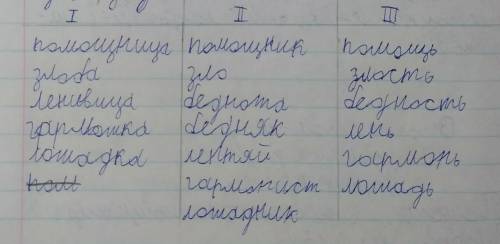 I II III
помощница помощник помощь
злоба зло злость
ленивица беднота бедность
гармошка бедняк лень
лошадка лентяй гармонь
пом гармонист лошадь
лошадник